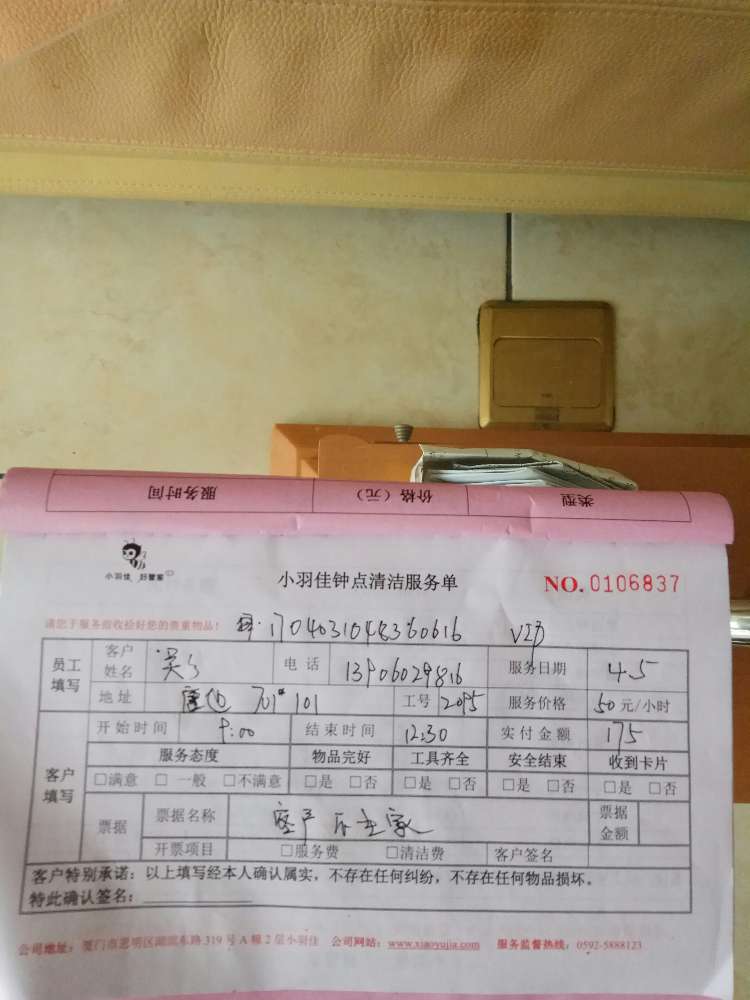 类型 价格（元） 服务时间
小羽佳 好管家
小羽佳钟点清洁服务单 NO.0106837
请您于服务前收拾好您的贵重物品! 1704031048360616 VIP
员工填写 客户姓名 吴 电话 13906029816 服务日期 4.5
地址 701# 101 工号 2095 服务价格 50元/小时
客户填写 开始时间 9:00 结束时间 12:30 实付金额 175
服务态度 物品完好 工具齐全 安全结束 收到卡片
□满意 □一般 □不满意 □是 □否 □是 □否 □是 □否 □是 □否
票据 票据名称 票据金额
开票项目 □服务费 □清洁费 客户签名
客户特别承诺：以上填写经本人确认属实，不存在任何纠纷，不存在任何物品损坏。
特此确认签名：
公司地址：厦门市思明区湖滨东路319号A幢2层小羽佳 公司网站：www.xiaoyujia.com 服务监督热线：0592-5888123